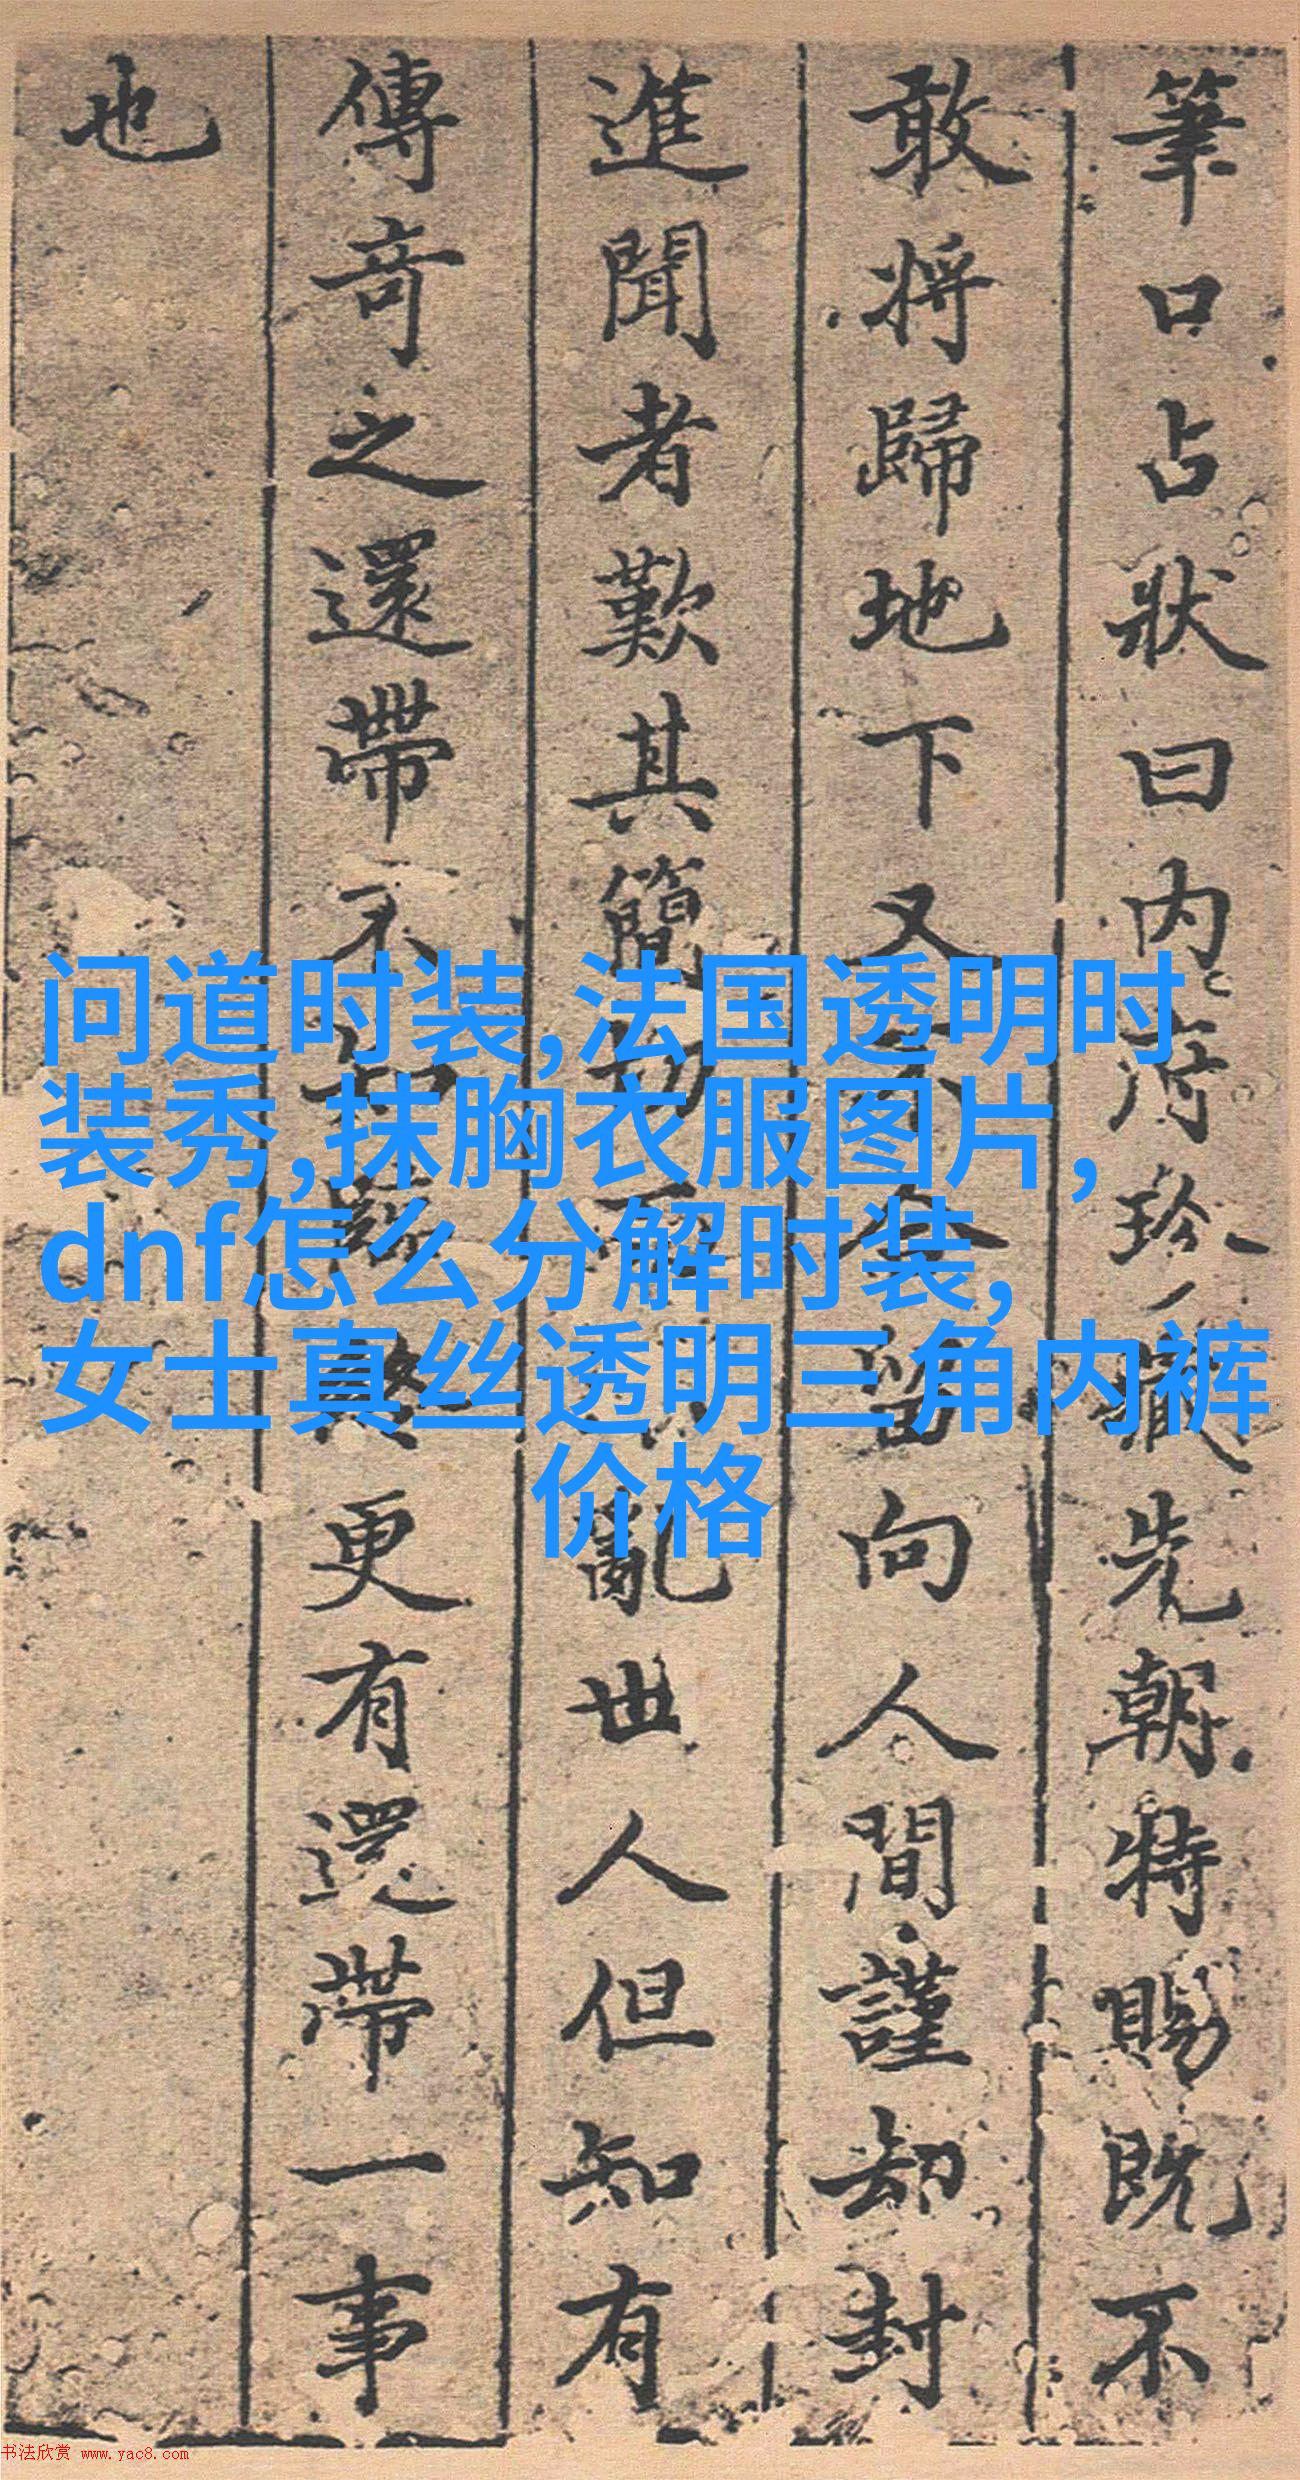 筆口占狀曰内府珍藏先朝特賜既不
敢將歸地下又不合留向人間謹却封
進聞者歎其簡切而不亂世人但知有
傳奇之還帶不知髹更有還帶一事
也
问道时装,法国透明时
装秀,抹胸衣服图片,
dnf怎么分解时装,
女士真丝透明三角内裤
价格
书法欣赏 www.yac8.com